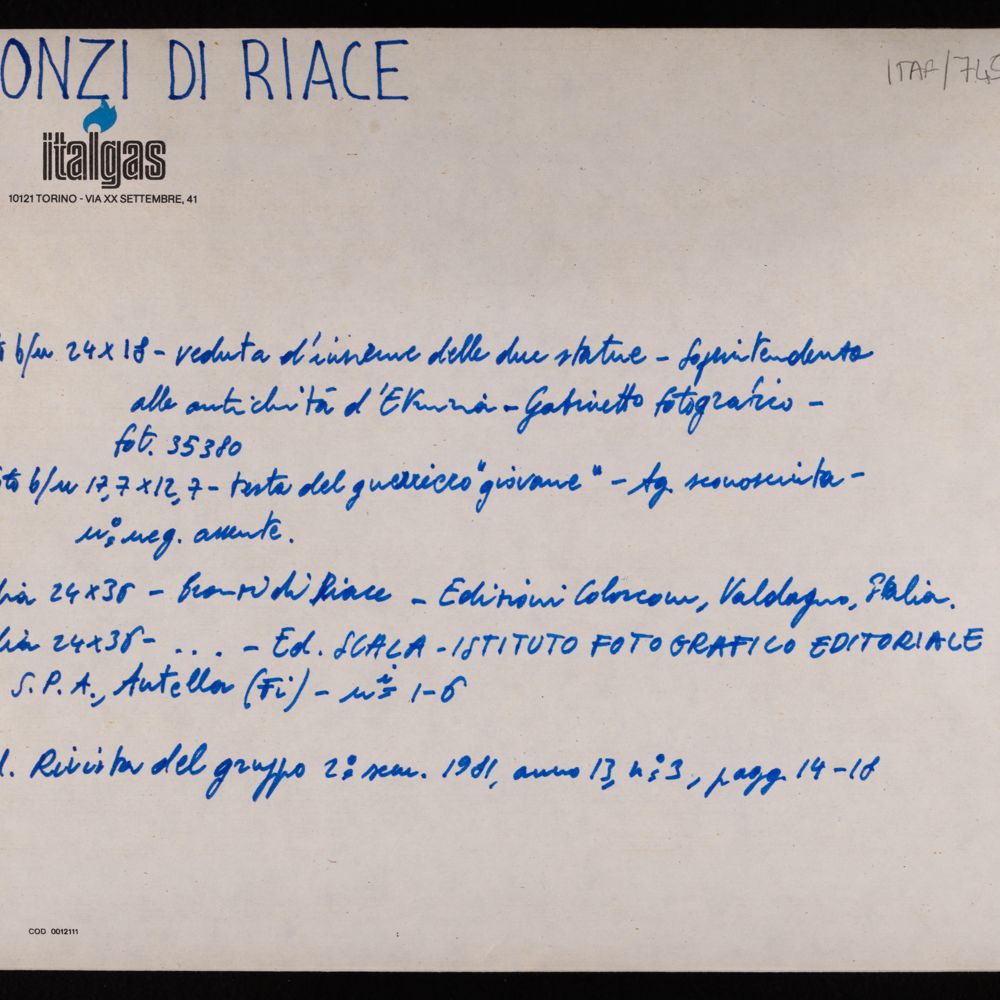 ONZI DI RIACE
ITAF/745
italgas
10121 TORINO - VIA XX SETTEMBRE, 41
b/n 24x18 - veduta d'insieme delle due statue - Soprintendenza
alle antichità d'Etruria - Gabinetto fotografico -
fot. 35380
to b/n 17,7x12,7 - testa del guerriero "giovane" - Ag. sconosciuta -
n° neg. assente.
ia 24x36 - Bronzi di Riace - Edizioni Colorcom, Valdagno, Italia.
ia 24x36 - ... - Ed. SCALA - ISTITUTO FOTOGRAFICO EDITORIALE
S.P.A., Antella (Fi) - n.i 1-6
d. Rivista del gruppo 2° sem. 1981, anno 13, n° 3, pagg. 14-18
COD 0012111